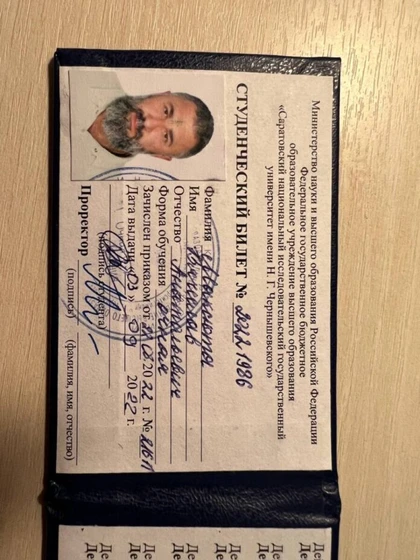 Министерство науки и высшего образования Российской Федерации
Федеральное государственное бюджетное
образовательное учреждение высшего образования
«Саратовский национальный исследовательский государственный
университет имени Н. Г. Чернышевского»
СТУДЕНЧЕСКИЙ БИЛЕТ № 2221986
Фамилия
Имя
Отчество Анатольевич
Форма обучения очная
Зачислен приказом от 2022 г. №
Дата выдачи «03» 09 2022 г.
(подпись студента)
Проректор
(подпись) (фамилия, имя, отчество)
Де
Де
Де
Де
Де
Де
Де
Де
Де
Де